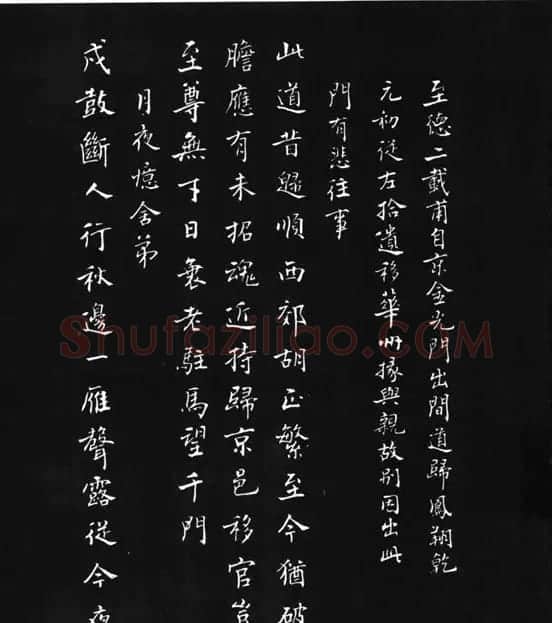 至德二載甫自京金光門出間道歸鳳翔乾
元初從左拾遺移華州掾與親故別因出此
門有悲往事
此道昔歸順西郊胡正繁至今猶破
膽應有未招魂近侍歸京邑移官豈
至尊無才日衰老駐馬望千門
月夜憶舍弟
戍鼓斷人行秋邊一雁聲露從今夜
Shufaziliao.COM